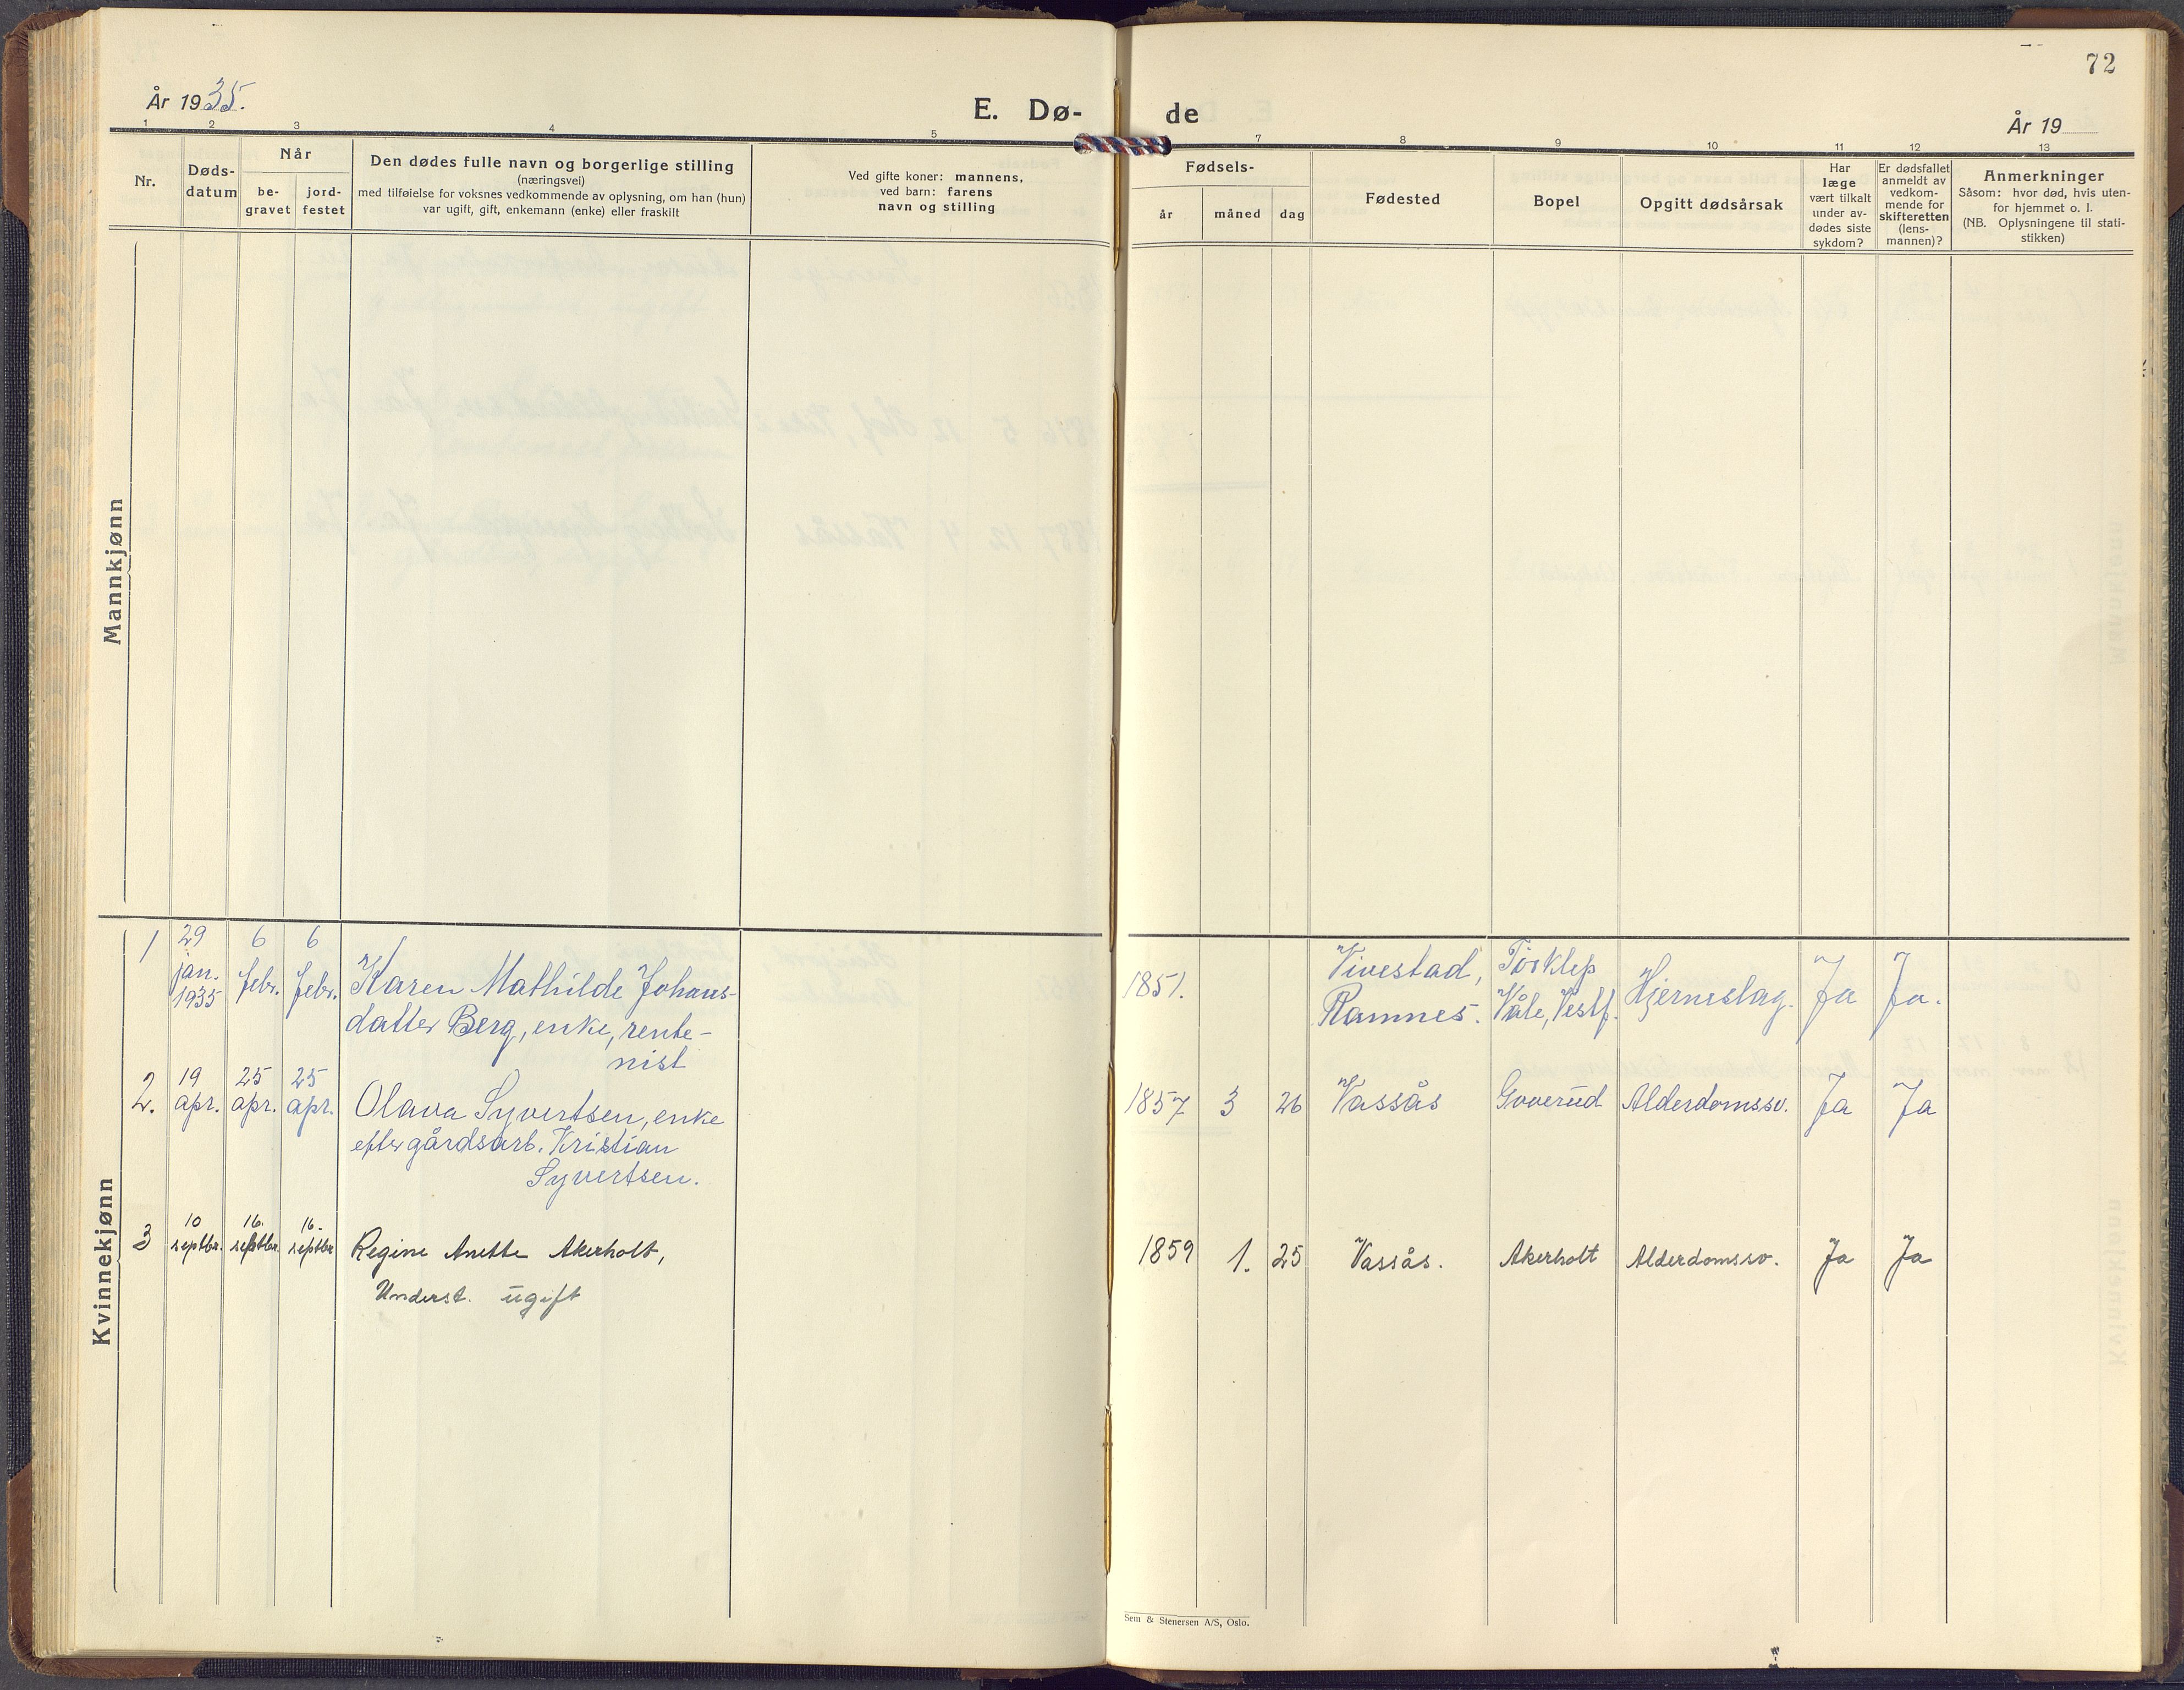 År 1935.
E. Dø-
1 2 3 4 5
Nr.
Døds-
datum
Når
be-
gravet
jord-
festet
Den dødes fulle navn og borgerlige stilling
(næringsvei)
med tilføielse for voksnes vedkommende av oplysning, om han (hun)
var ugift, gift, enkemann (enke) eller fraskilt
Ved gifte koner: mannens,
ved barn: farens
navn og stilling
Mannkjønn
Kvinnekjønn
1 29 jan. 1935 6 febr. 6 febr. Karen Mathilde Johans-
datter Berg, enke, rente-
nist
2. 19 apr. 25 apr. 25 apr. Olava Syvertsen, enke
efter gårdsarb. Kristian
Syvertsen.
3 10 septbr. 16. septbr. 16. septbr Regine Anette Akerholt,
Underst. ugift
72
de
År 19
7 8 9 10 11 12 13
Fødsels-
år måned dag
Fødested
Bopel
Opgitt dødsårsak
Har
læge
vært tilkalt
under av-
dødes siste
sykdom?
Er dødsfallet
anmeldt av
vedkom-
mende for
skifteretten
(lens-
mannen)?
Anmerkninger
Såsom: hvor død, hvis uten-
for hjemmet o. l.
(NB. Oplysningene til stati-
stikken)
1851. Vivestad, Ramnes. Torklep Våle, Vestf. Hjerneslag. Ja Ja.
1857 3 26 Vassås Goverud Alderdomssv. Ja Ja
1859 1. 25 Vassås. Akerholt Alderdomssv. Ja Ja
Sem & Stenersen A/S, Oslo.